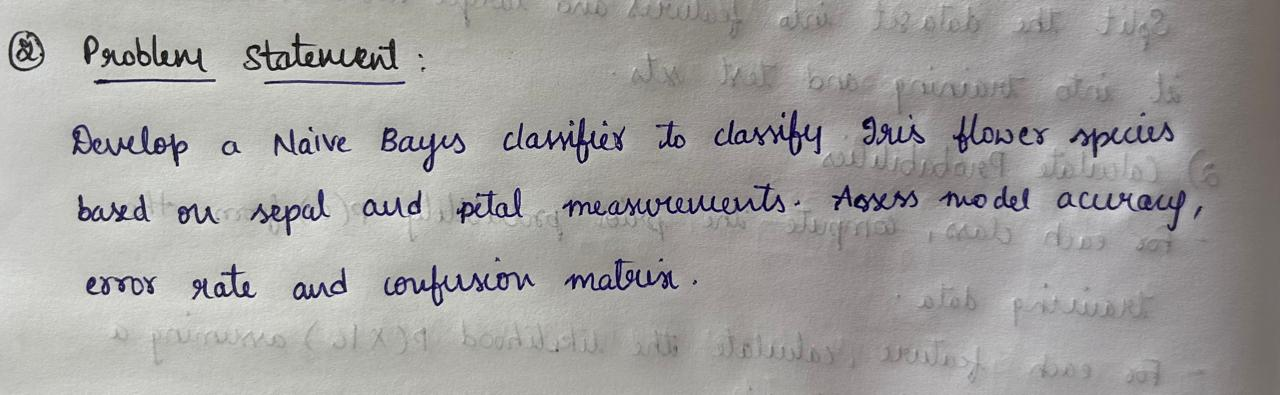 ② Problem Statement :
Develop a Naive Bayes classifier to classify Iris flower species
based on sepal and petal measurements. Assess model accuracy,
error rate and confusion matrix.